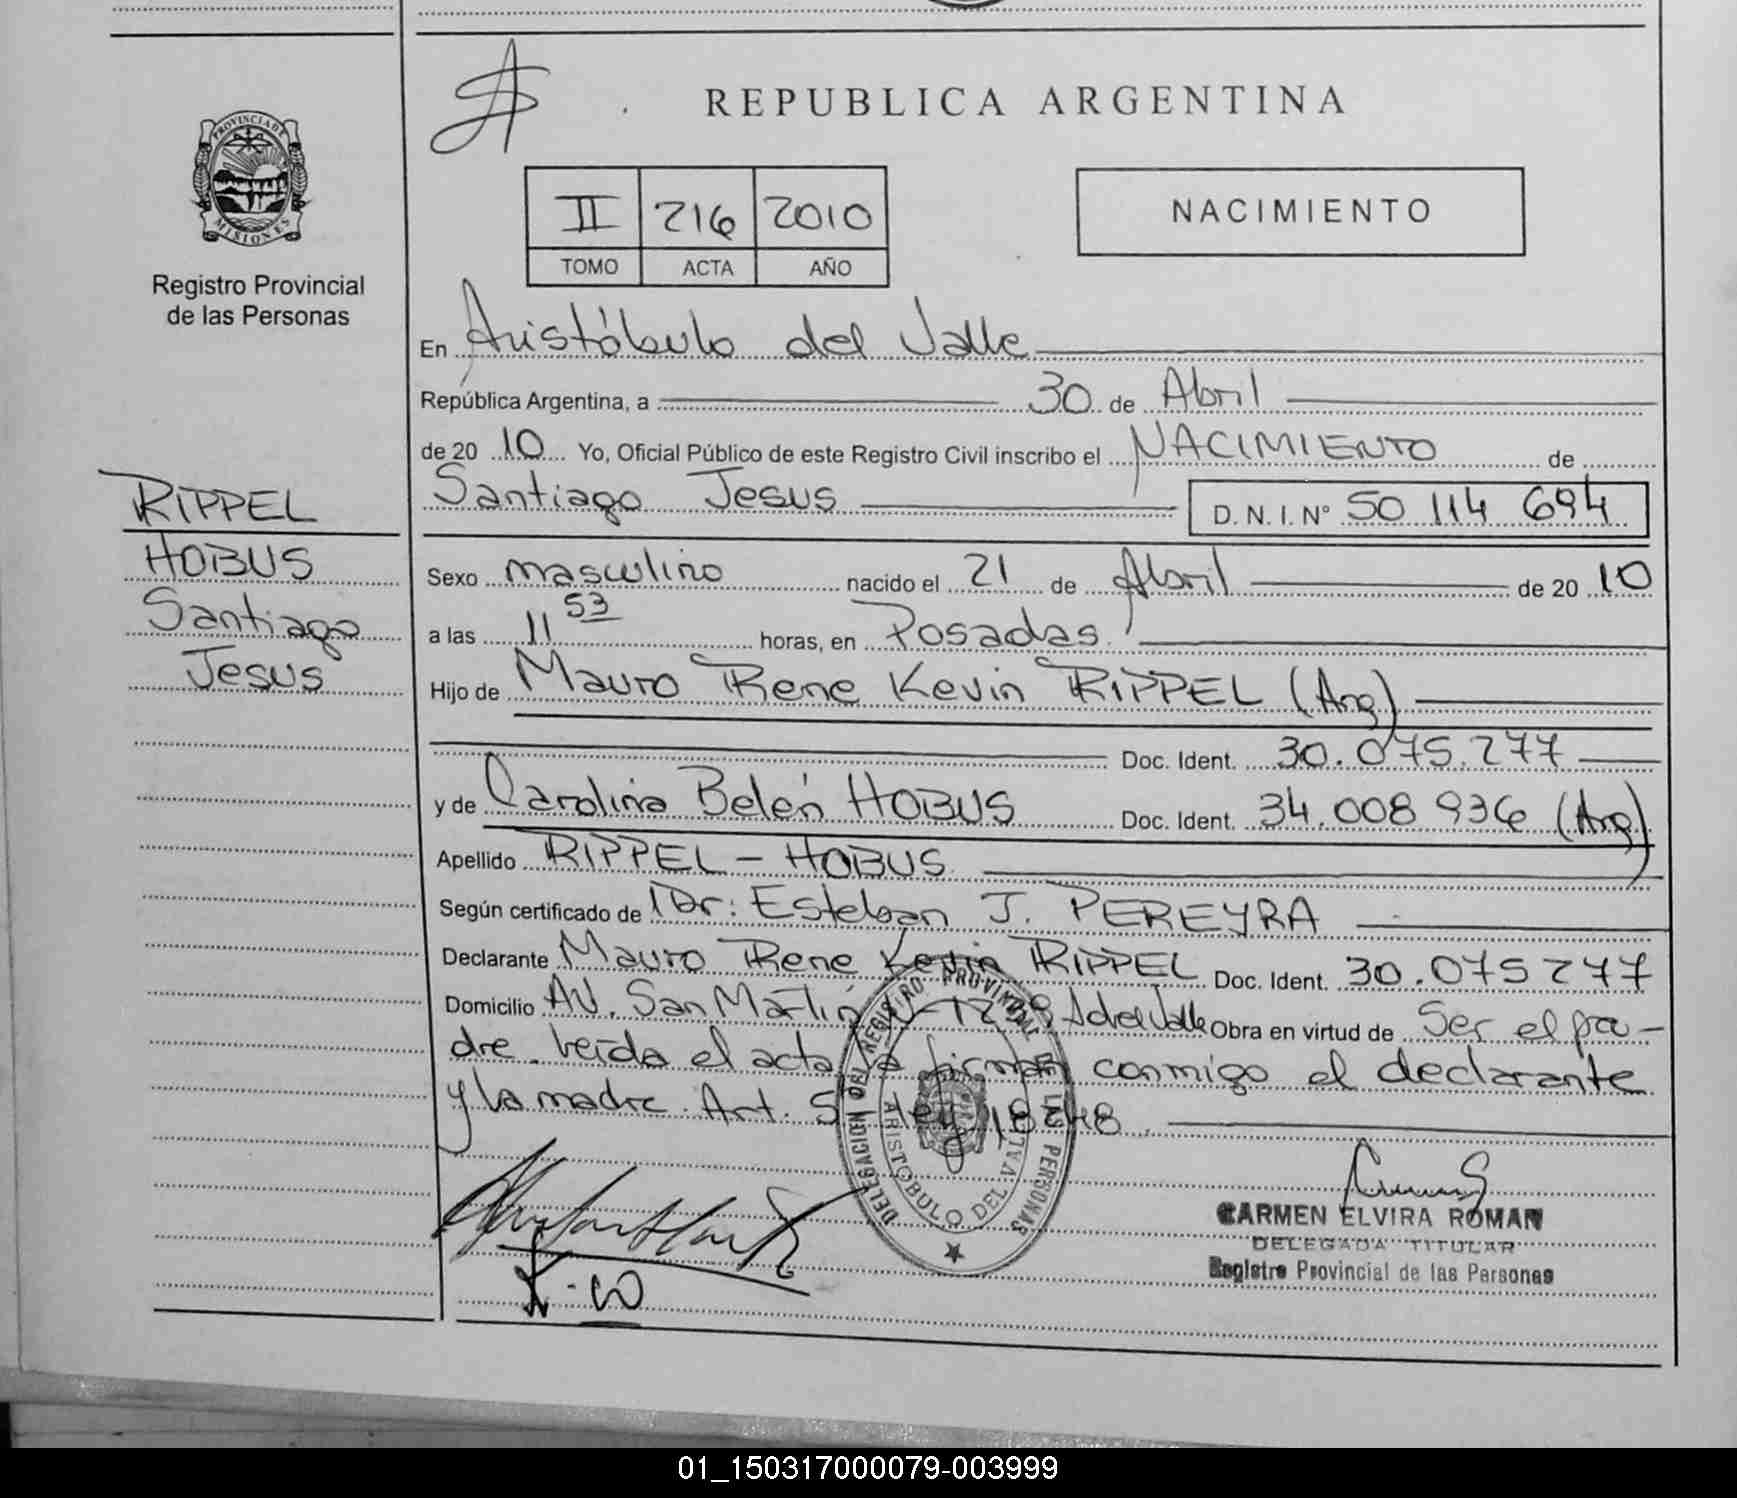 REPUBLICA ARGENTINA
PROVINCIA DE
MISIONES
Registro Provincial
de las Personas
II 216 2010
TOMO ACTA AÑO
NACIMIENTO
RIPPEL
HOBUS
Santiago
Jesus
En Aristóbulo del Valle
República Argentina, a 30 de Abril
de 20 10 Yo, Oficial Público de este Registro Civil inscribo el NACIMIENTO de
Santiago Jesus D. N. I. N° 50 114 694
Sexo masculino nacido el 21 de Abril de 20 10
a las 11 53 horas, en Posadas.
Hijo de Mauro Rene Kevin RIPPEL (Arg)
Doc. Ident. 30.075.277
y de Carolina Belén HOBUS Doc. Ident. 34.008 936 (Arg)
Apellido RIPPEL - HOBUS
Según certificado de Dr: Esteban J. PEREYRA
Declarante Mauro Rene Kevin RIPPEL Doc. Ident. 30.075 277
Domicilio AV. San Martín A del Valle Obra en virtud de Ser el pa-
dre. leida el acta la firman conmigo el declarante
y la madre. Art. 5 ley 18248.
DELEGACION DEL REGISTRO PROVINCIAL DE LAS PERSONAS
ARISTOBULO DEL VALLE
CARMEN ELVIRA ROMAN
DELEGADA TITULAR
Registro Provincial de las Personas
01_150317000079-003999